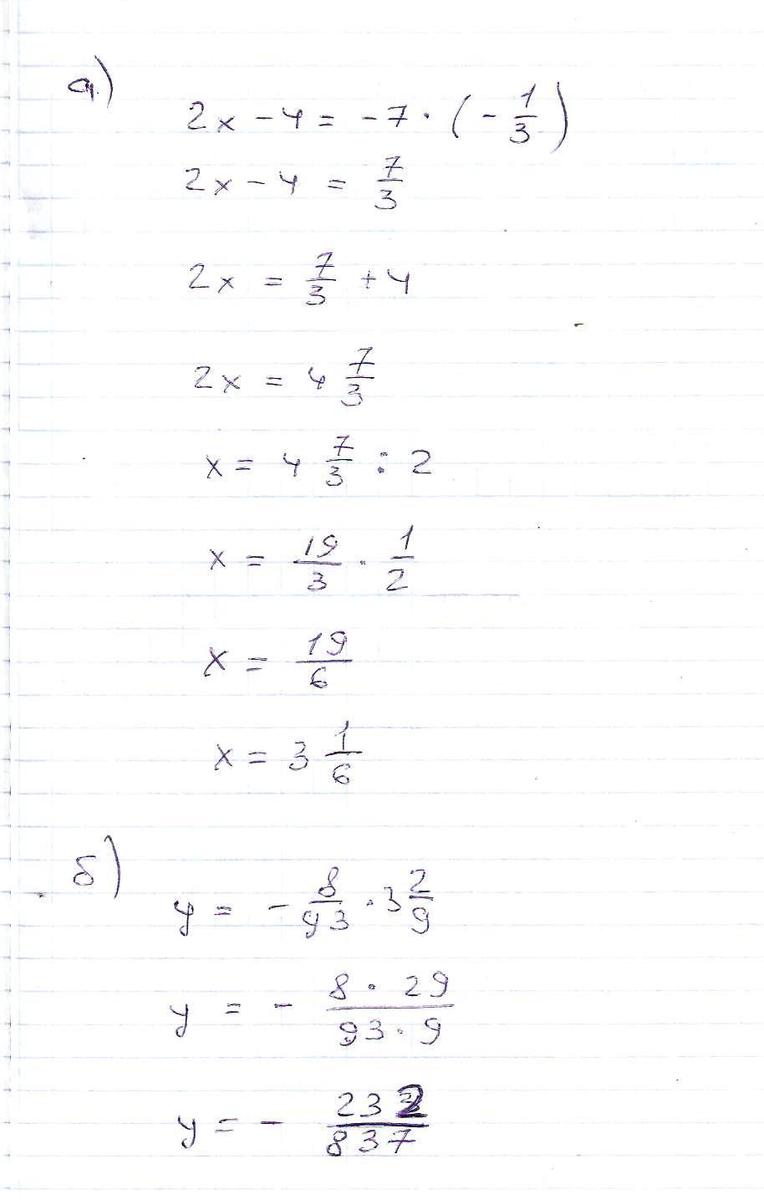 а)
2x - 4 = -7 · (-1/3)
2x - 4 = 7/3
2x = 7/3 + 4
2x = 4 7/3
x = 4 7/3 : 2
x = 19/3 · 1/2
x = 19/6
x = 3 1/6
б)
y = - 8/93 · 3 2/9
y = - 8 · 29/93 · 9
y = - 232/837